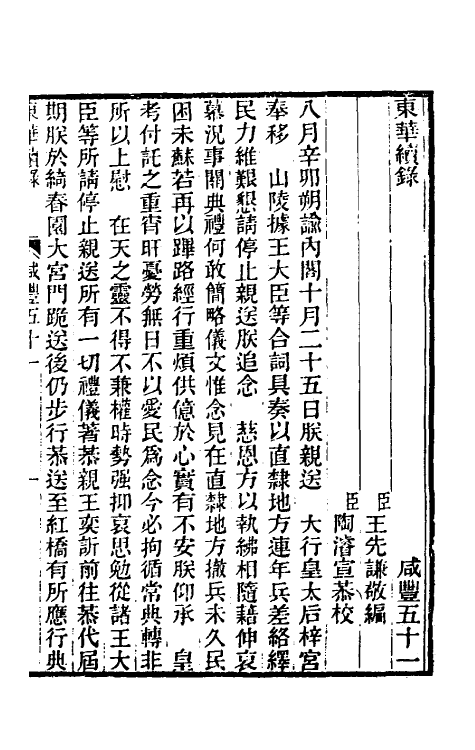 東華續錄　咸豐五十一
臣王先謙敬編
臣陶濬宣恭校
八月辛卯朔諭內閣十月二十五日朕親送　大行皇太后梓宮
奉移　山陵據王大臣等合詞具奏以直隸地方連年兵差絡繹
民力維艱懇請停止親送朕追念　慈恩方以執紼相隨藉伸哀
慕況事關典禮何敢簡略儀文惟念見在直隸地方撤兵未久民
困未蘇若再以蹕路經行重煩供億於心實有不安朕仰承　皇
考付託之重宵旰憂勞無日不以愛民為念今必拘循常典轉非
所以上慰　在天之靈不得不兼權時勢强抑哀思勉從諸王大
臣等所請停止親送所有一切禮儀著恭親王奕訢前往恭代屆
期朕於綺春園大宮門跪送後仍步行恭送至紅橋有所應行典
東華續錄　咸豐五十一　一